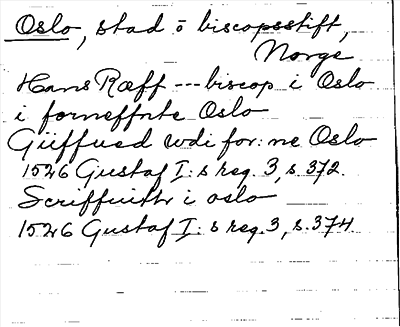 Oslo, stad o biscopsstift,
Norge
Hans Ræff --- biscop i Oslo
i forneffnte Oslo
Giiffued wdi for: ne Oslo
1526 Gustaf I: s reg. 3, s. 372.
Scriffuitt i oslo
1526 Gustaf I: s reg. 3, s. 374.